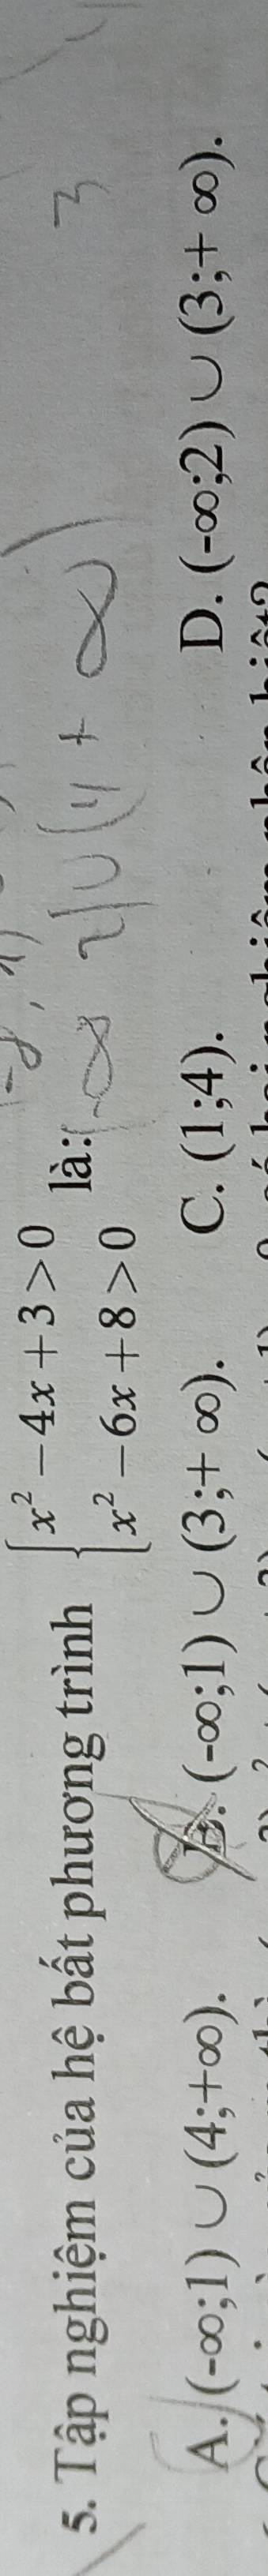 5. Tập nghiệm của hệ bất phương trình { x² − 4x + 3 > 0
x² − 6x + 8 > 0 là:
(-∞ 2) ∪ (4 + ∞)
3
A. (-∞;1) ∪ (4;+∞). B. (-∞;1) ∪ (3;+ ∞). C. (1;4). D. (-∞;2) ∪ (3;+ ∞).